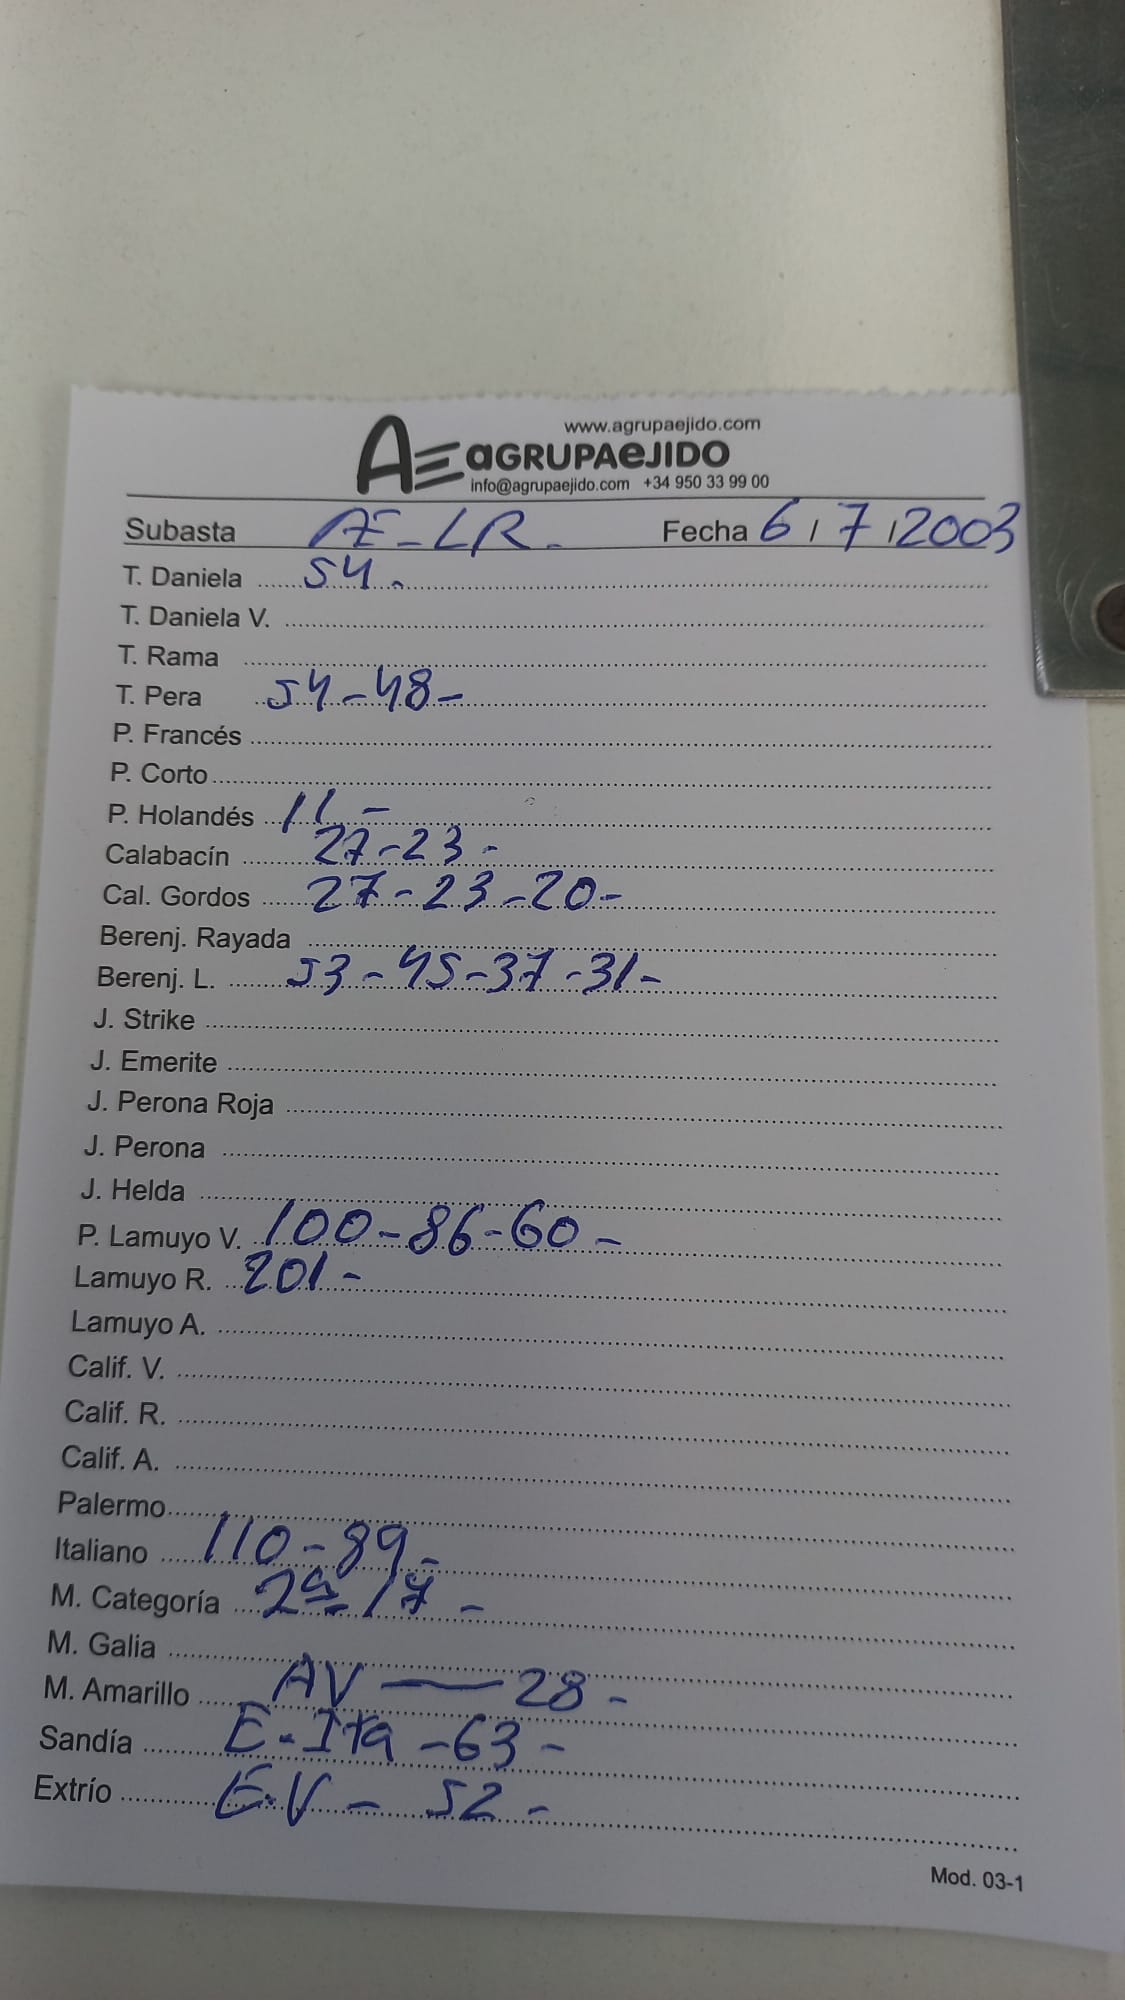 www.agrupaejido.com
AE aGRUPAeJIDO
info@agrupaejido.com +34 950 33 99 00
Subasta AE-LR- Fecha 6/7/2003
T. Daniela 54-
T. Daniela V.
T. Rama
T. Pera 54-48-
P. Francés
P. Corto
P. Holandés 11-
Calabacín 27-23-
Cal. Gordos 27-23-20-
Berenj. Rayada
Berenj. L. 53-45-37-31-
J. Strike
J. Emerite
J. Perona Roja
J. Perona
J. Helda
P. Lamuyo V. 100-86-60-
Lamuyo R. 201-
Lamuyo A.
Calif. V.
Calif. R.
Calif. A.
Palermo
Italiano 110-89-
M. Categoría 2ª 17-
M. Galia
M. Amarillo AV — 28-
Sandía E-Ita-63-
Extrío E.V-52-
Mod. 03-1